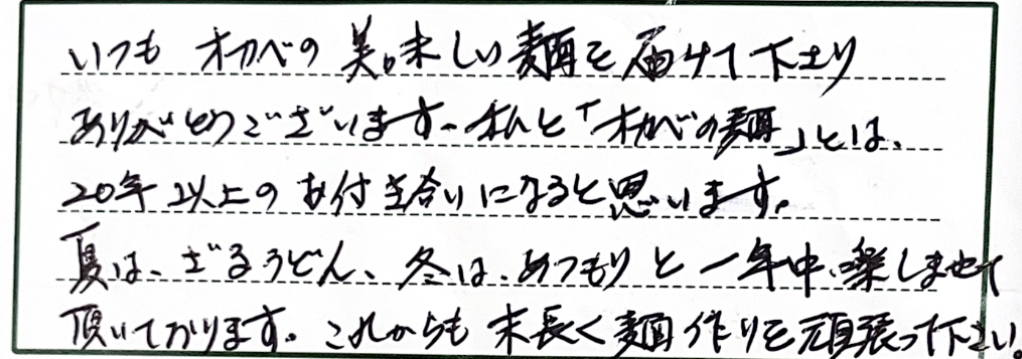 いつも オカベの 美味しい麺を届けて下さり
ありがとうございます。私と「オカベの麺」とは、
20年以上のお付き合いになると思います。
夏は、ざるうどん、冬は、あつもりと一年中、楽しませて
頂いております。これからも 末長く麺作りを頑張って下さい。